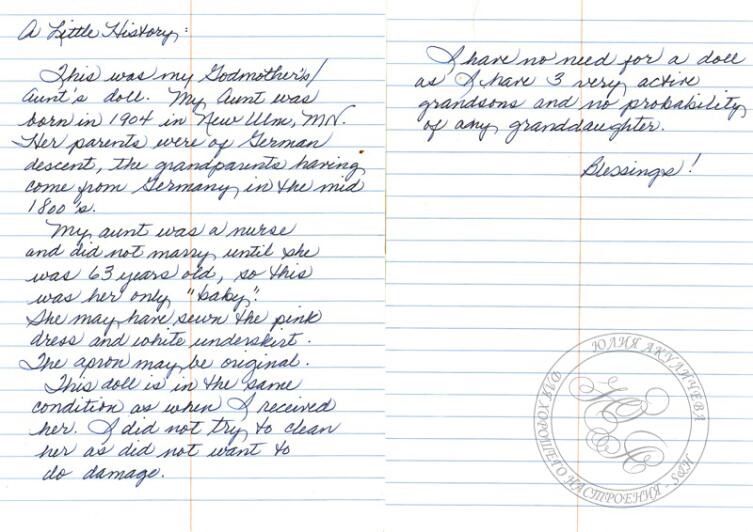 A Little History:
This was my Godmother's/
Aunt's doll. My Aunt was
born in 1904 in New Ulm, MN.
Her parents were of German
descent, the grandparents having
come from Germany in the mid
1800's.
My aunt was a nurse
and did not marry until she
was 63 years old, so this
was her only "baby".
She may have sewn the pink
dress and white underskirt.
The apron may be original.
This doll is in the same
condition as when I received
her. I did not try to clean
her as did not want to
do damage.
I have no need for a doll
as I have 3 very active
grandsons and no probability
of any granddaughter.
Blessings!
ЮЛИЯ АКУЛИЧЕВА
НАСТРОЕНИЯ